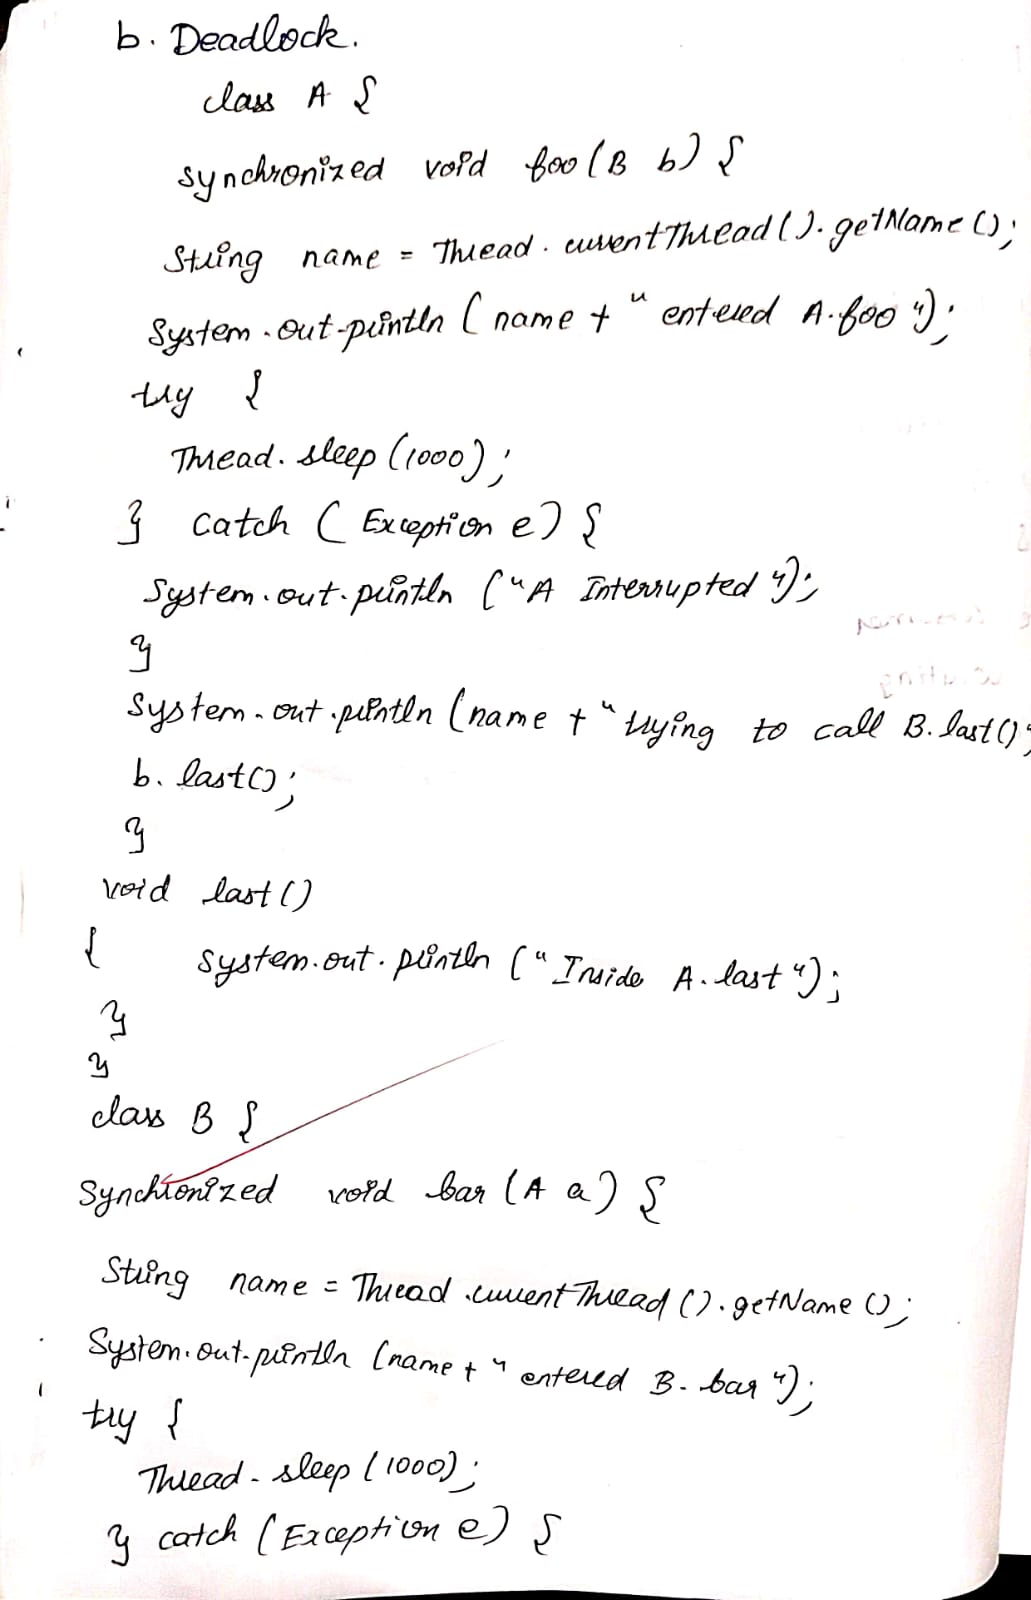 b. Deadlock.
class A {
synchronized void foo (B b) {
String name = Thread . currentThread ( ). getName ();
System . out . println ( name + " entered A. foo ");
try {
Thread. sleep (1000) ;
} catch ( Exception e) {
System . out . println (" A Interrupted ");
}
System . out . println (name + " trying to call B. last ()
b. last();
}
void last ()
{ System . out . println (" Inside A. last ");
}
}
class B {
Synchronized void bar (A a) {
String name = Thread . current Thread (). getName ();
System. out. println (name + " entered B. bar ");
try {
Thread . sleep (1000) ;
} catch (Exception e) {